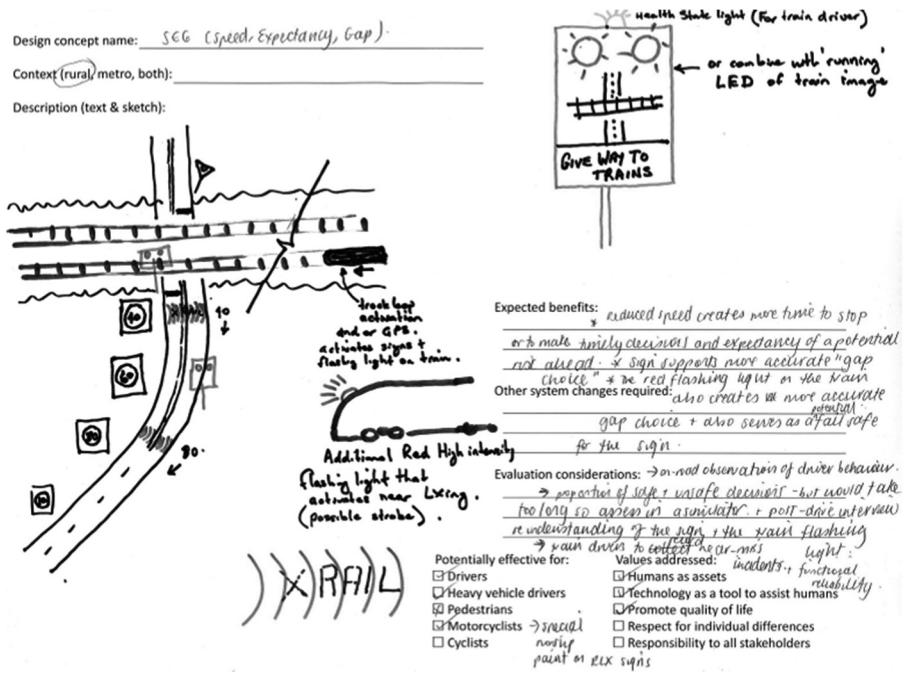 Design concept name: SEG (Speed, Expectancy, Gap).
Context (rural, metro, both):
Description (text & sketch):
Health State light (For train driver)
or combine with 'running'
LED of train image
GIVE WAY TO
TRAINS
40
60
80
40
80.
track loop
activation
and or GPS.
activates signs +
flashing light on train.
Additional Red High intensity
flashing light that
activates near Lxing.
(possible strobe).
X RAIL
Expected benefits: * reduced speed creates more time to stop
or to make timely decisions and expectancy of a potential
ahead. * sign supports more accurate "gap
choice" * The red flashing light on the train
Other system changes required: also creates more accurate
gap choice + also serves as a potential fail safe
for the sign.
Evaluation considerations: → on-road observation of driver behaviour.
→ proportion of safe + unsafe decisions - but would take
too long so assess in a simulator. + post-drive interview
re understanding of the sign + the train flashing
light.
→ train driver to record near-miss
incidents. + functional
reliability.
Potentially effective for:
Drivers
Heavy vehicle drivers
Pedestrians
Motorcyclists → special
paint on RLX signs
Cyclists
Values addressed:
Humans as assets
Technology as a tool to assist humans
Promote quality of life
Respect for individual differences
Responsibility to all stakeholders